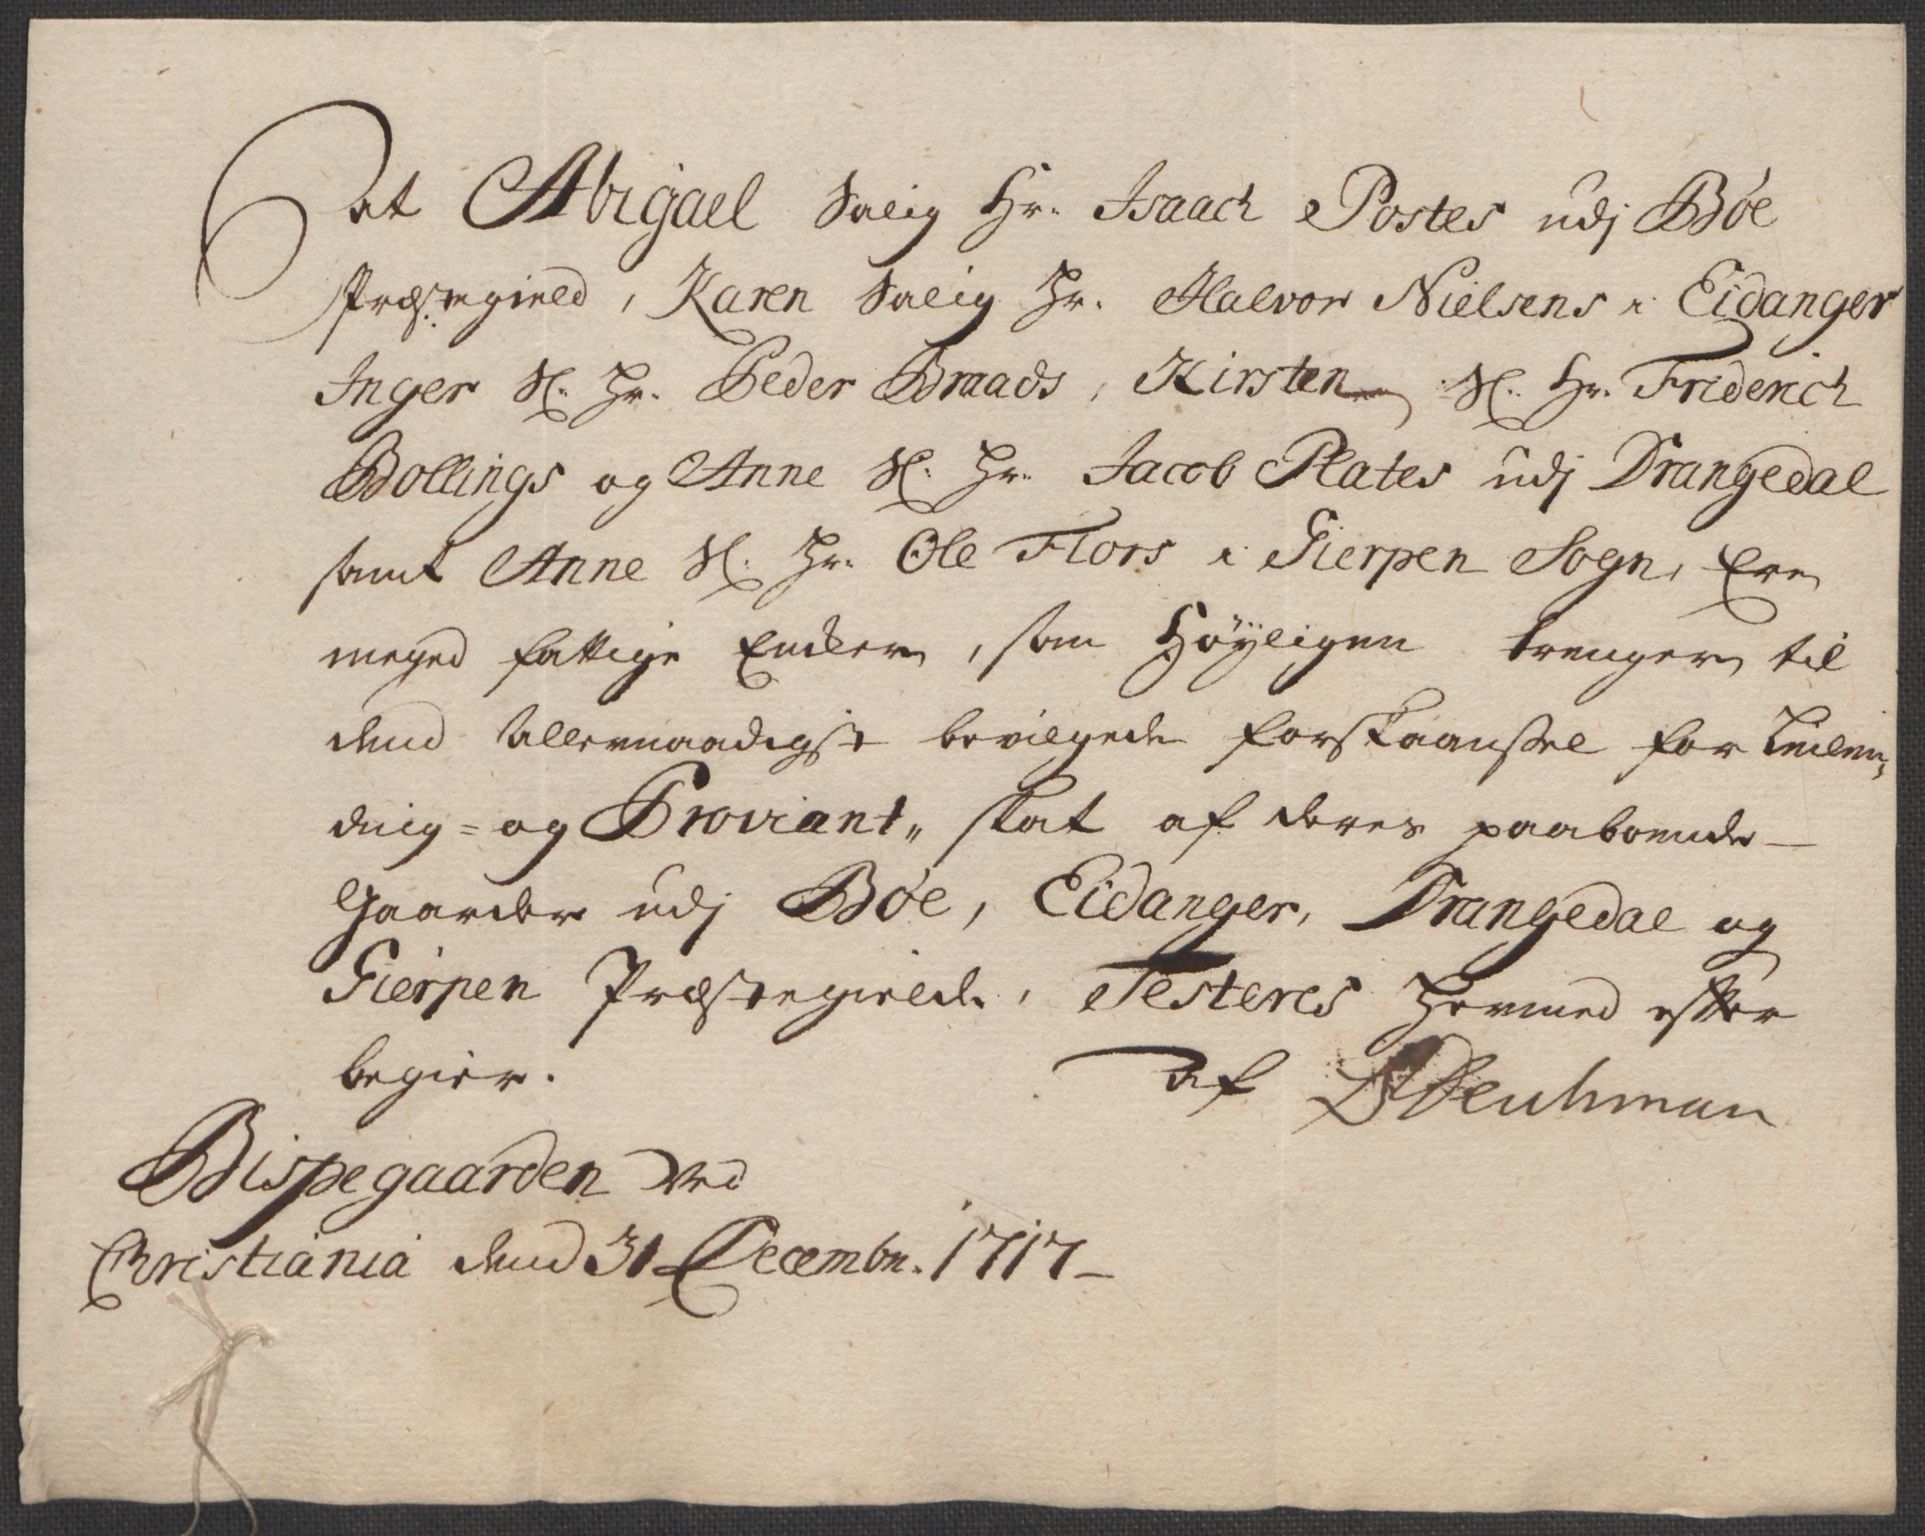 At Abigael Salig Hr. Isaach Postes udj Bøe
Præstegield, Karen Salig Hr. Halvor Nielsens i Eidanger
Inger Sl. Hr. Peder Braads, Kirsten Sl. Hr. Friderich
Bollings og Anne Sl. Hr. Jacob Plates udj Drangedal
samt Anne Sl. Hr. Ole Flors i Gierpen Sogn, Ere
meged fattige Encker, som Høyligen trenger til
dend Allernaadigst bevilgede forskaanssel for Leilen¬
ding= og Proviant„ skat af deres paaboende
Gaarder udj Bøe, Eidanger, Drangedal og
Gierpen Præstegielde, Testeres Hermed efter
begier.
af BDeichman
Bispegaarden ved
Christiania dend 31 Decembr. 1717